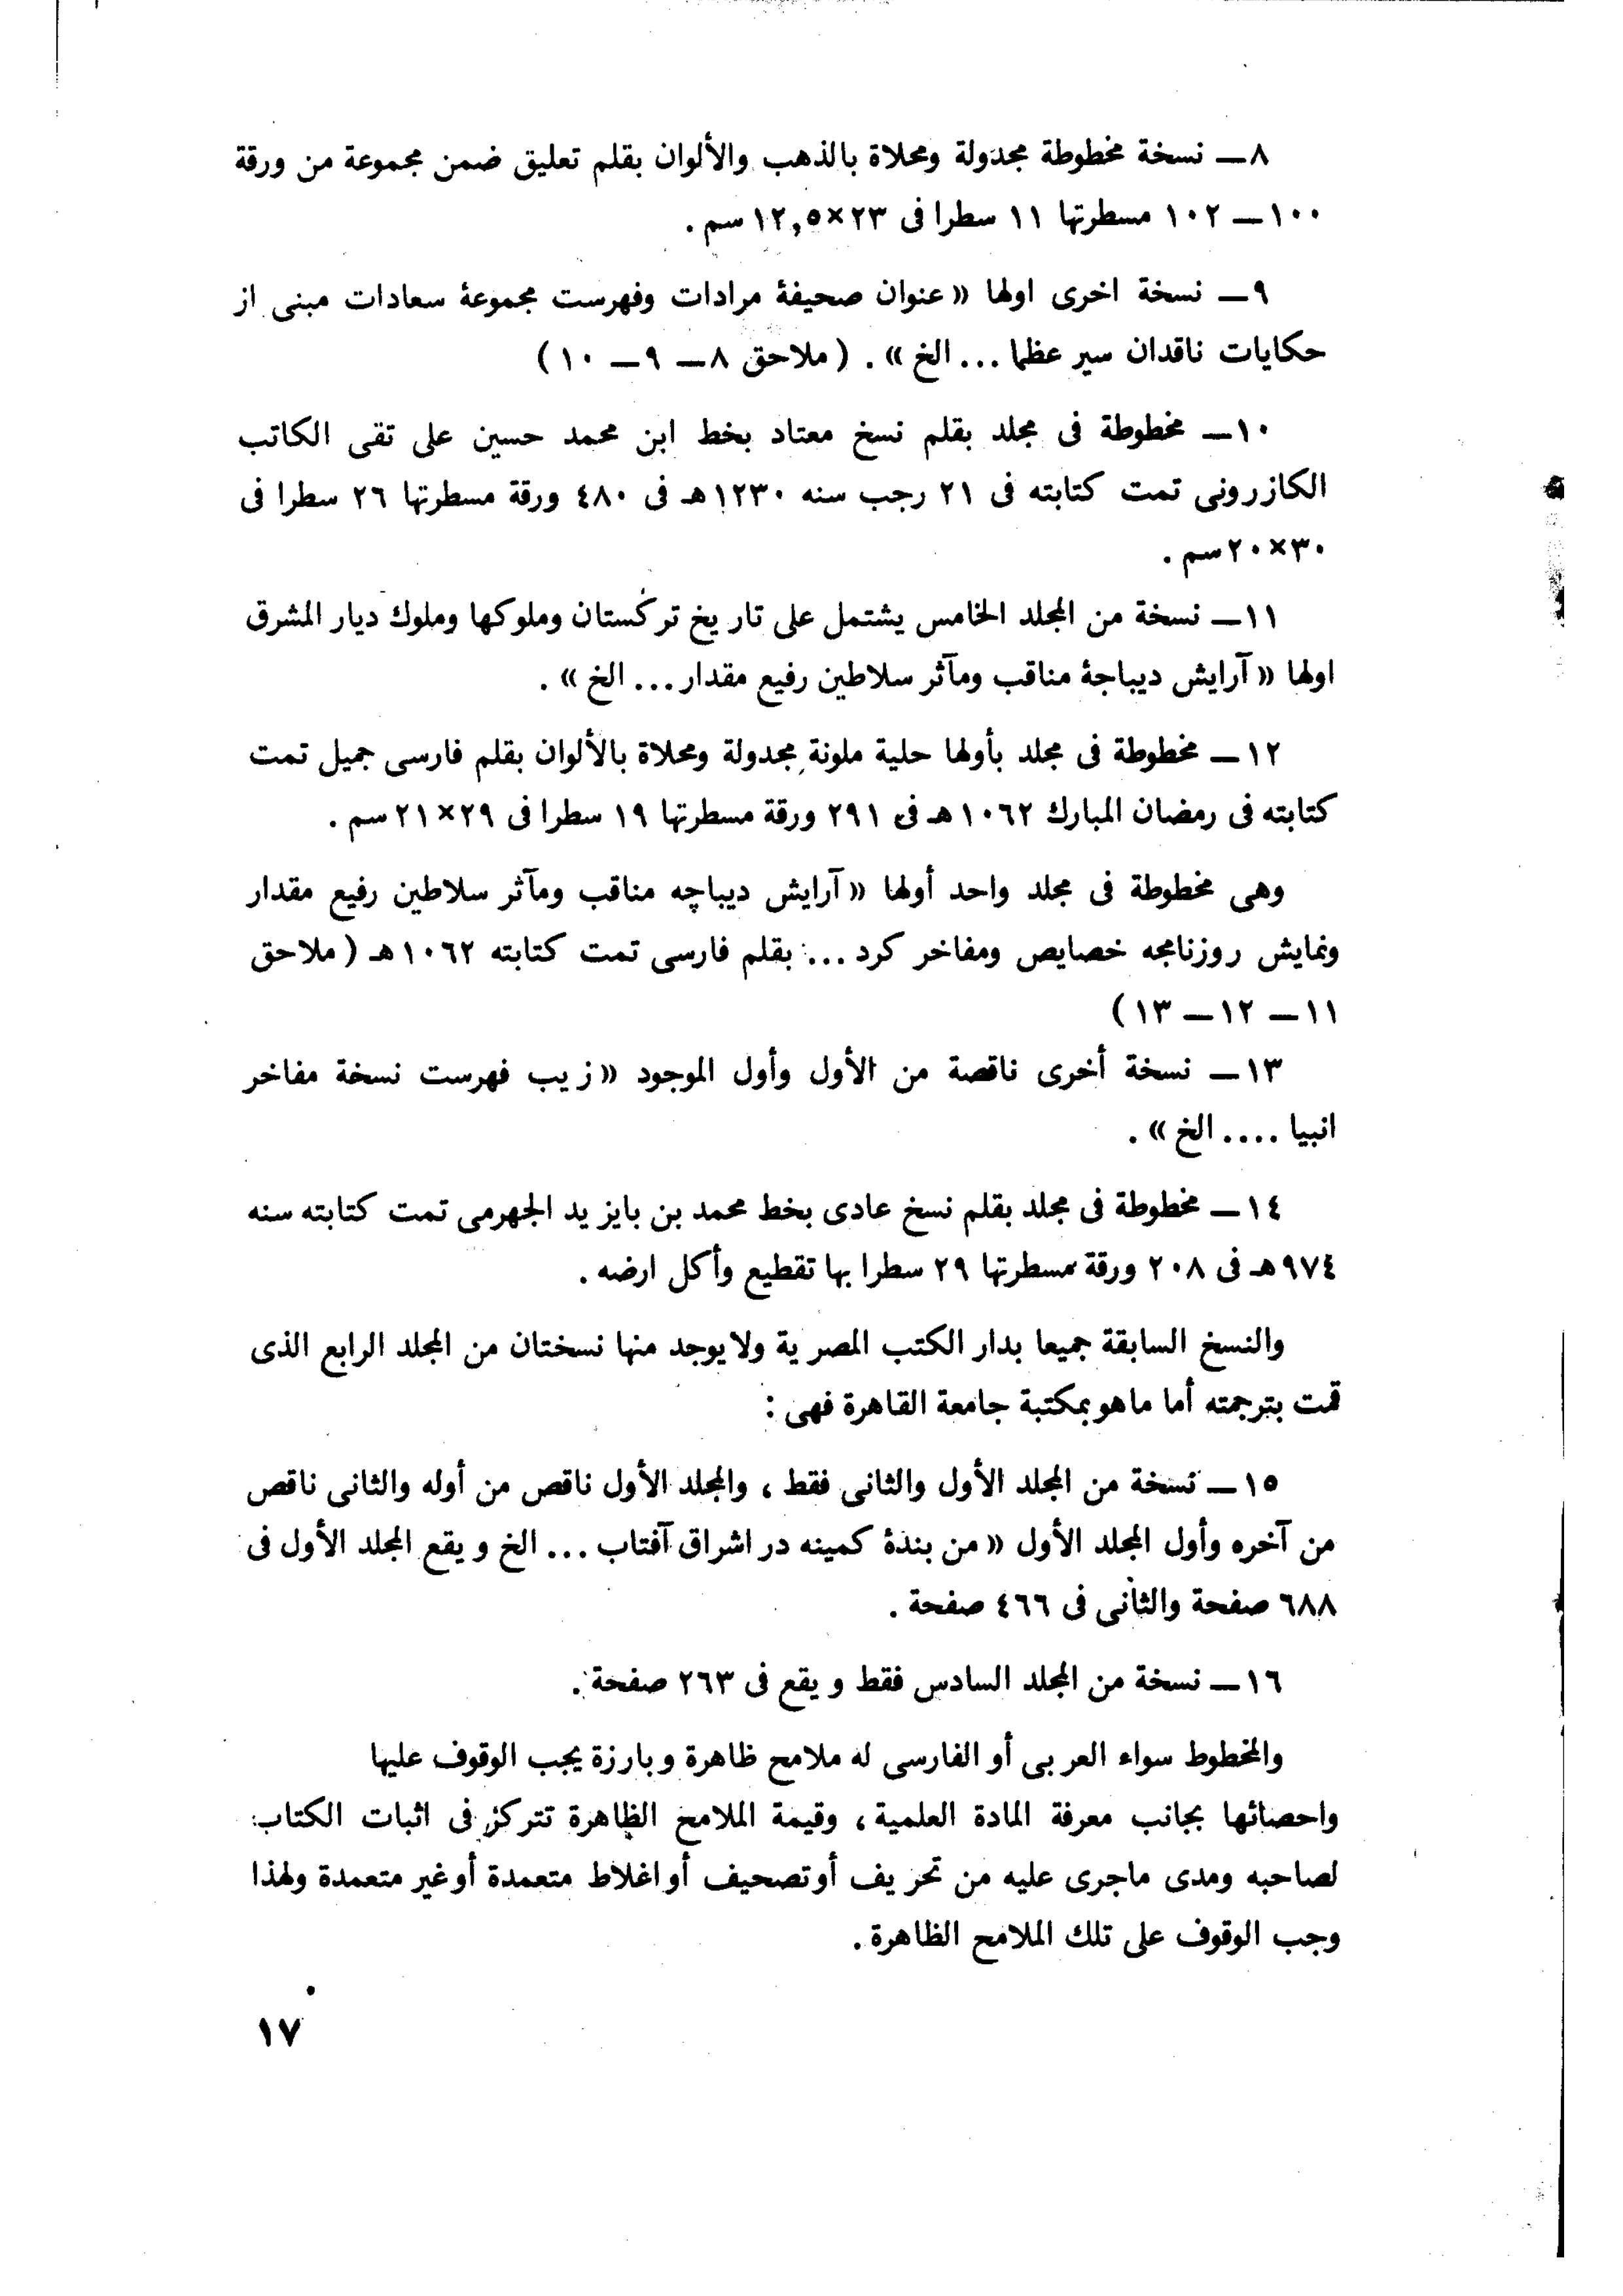 ٨ــ نسخة مخطوطة مجدولة ومحلاة بالذهب والألوان بقلم تعليق ضمن مجموعة من ورقة
١٠٠ــ ١٠٢ مسطرتها ١١ سطرا فى ٢٣×١٢,٥ سم .
٩ــ نسخة اخرى اولها « عنوان صحيفۀ مرادات وفهرست مجموعۀ سعادات مبنى از
حكايات ناقدان سير عظما ... الخ » . ( ملاحق ٨ــ ٩ــ ١٠ )
١٠ــ مخطوطة فى مجلد بقلم نسخ معتاد بخط ابن محمد حسين على تقى الكاتب
الكازرونى تمت كتابته فى ٢١ رجب سنه ١٢٣٠هـ فى ٤٨٠ ورقة مسطرتها ٢٦ سطرا فى
٣٠×٢٠سم .
١١ــ نسخة من المجلد الخامس يشتمل على تاريخ تركستان وملوكها وملوك ديار المشرق
اولها « آرايش ديباجۀ مناقب ومآثر سلاطين رفيع مقدار ... الخ » .
١٢ــ مخطوطة فى مجلد بأولها حلية ملونة مجدولة ومحلاة بالألوان بقلم فارسى جميل تمت
كتابته فى رمضان المبارك ١٠٦٢هـ فى ٢٩١ ورقة مسطرتها ١٩ سطرا فى ٢٩×٢١سم .
وهى مخطوطة فى مجلد واحد أولها « آرايش ديباچه مناقب ومآثر سلاطين رفيع مقدار
ونمايش روزنامجه خصايص ومفاخر كرد ... بقلم فارسى تمت كتابته ١٠٦٢هـ ( ملاحق
١١ــ ١٢ــ ١٣ )
١٣ــ نسخة أخرى ناقصة من الأول وأول الموجود « زيب فهرست نسخة مفاخر
انبيا .... الخ » .
١٤ــ مخطوطة فى مجلد بقلم نسخ عادى بخط محمد بن بايزيد الجهرمى تمت كتابته سنه
٩٧٤هـ فى ٢٠٨ ورقة مسطرتها ٢٩ سطرا بها تقطيع وأكل ارضه .
والنسخ السابقة جميعا بدار الكتب المصرية ولايوجد منها نسختان من المجلد الرابع الذى
قمت بترجمته أما ماهو بمكتبة جامعة القاهرة فهى :
١٥ــ نسخة من المجلد الأول والثانى فقط ، والمجلد الأول ناقص من أوله والثانى ناقص
من آخره وأول المجلد الأول « من بندۀ كمينه در اشراق آفتاب ... الخ ويقع المجلد الأول فى
٦٨٨ صفحة والثانى فى ٤٦٦ صفحة .
١٦ــ نسخة من المجلد السادس فقط ويقع فى ٢٦٣ صفحة .
والمخطوط سواء العربى أو الفارسى له ملامح ظاهرة وبارزة يجب الوقوف عليها
واحصائها بجانب معرفة المادة العلمية ، وقيمة الملامح الظاهرة تتركز فى اثبات الكتاب
لصاحبه ومدى ماجرى عليه من تحريف أو تصحيف أو اغلاط متعمدة أو غير متعمدة ولهذا
وجب الوقوف على تلك الملامح الظاهرة .
١٧